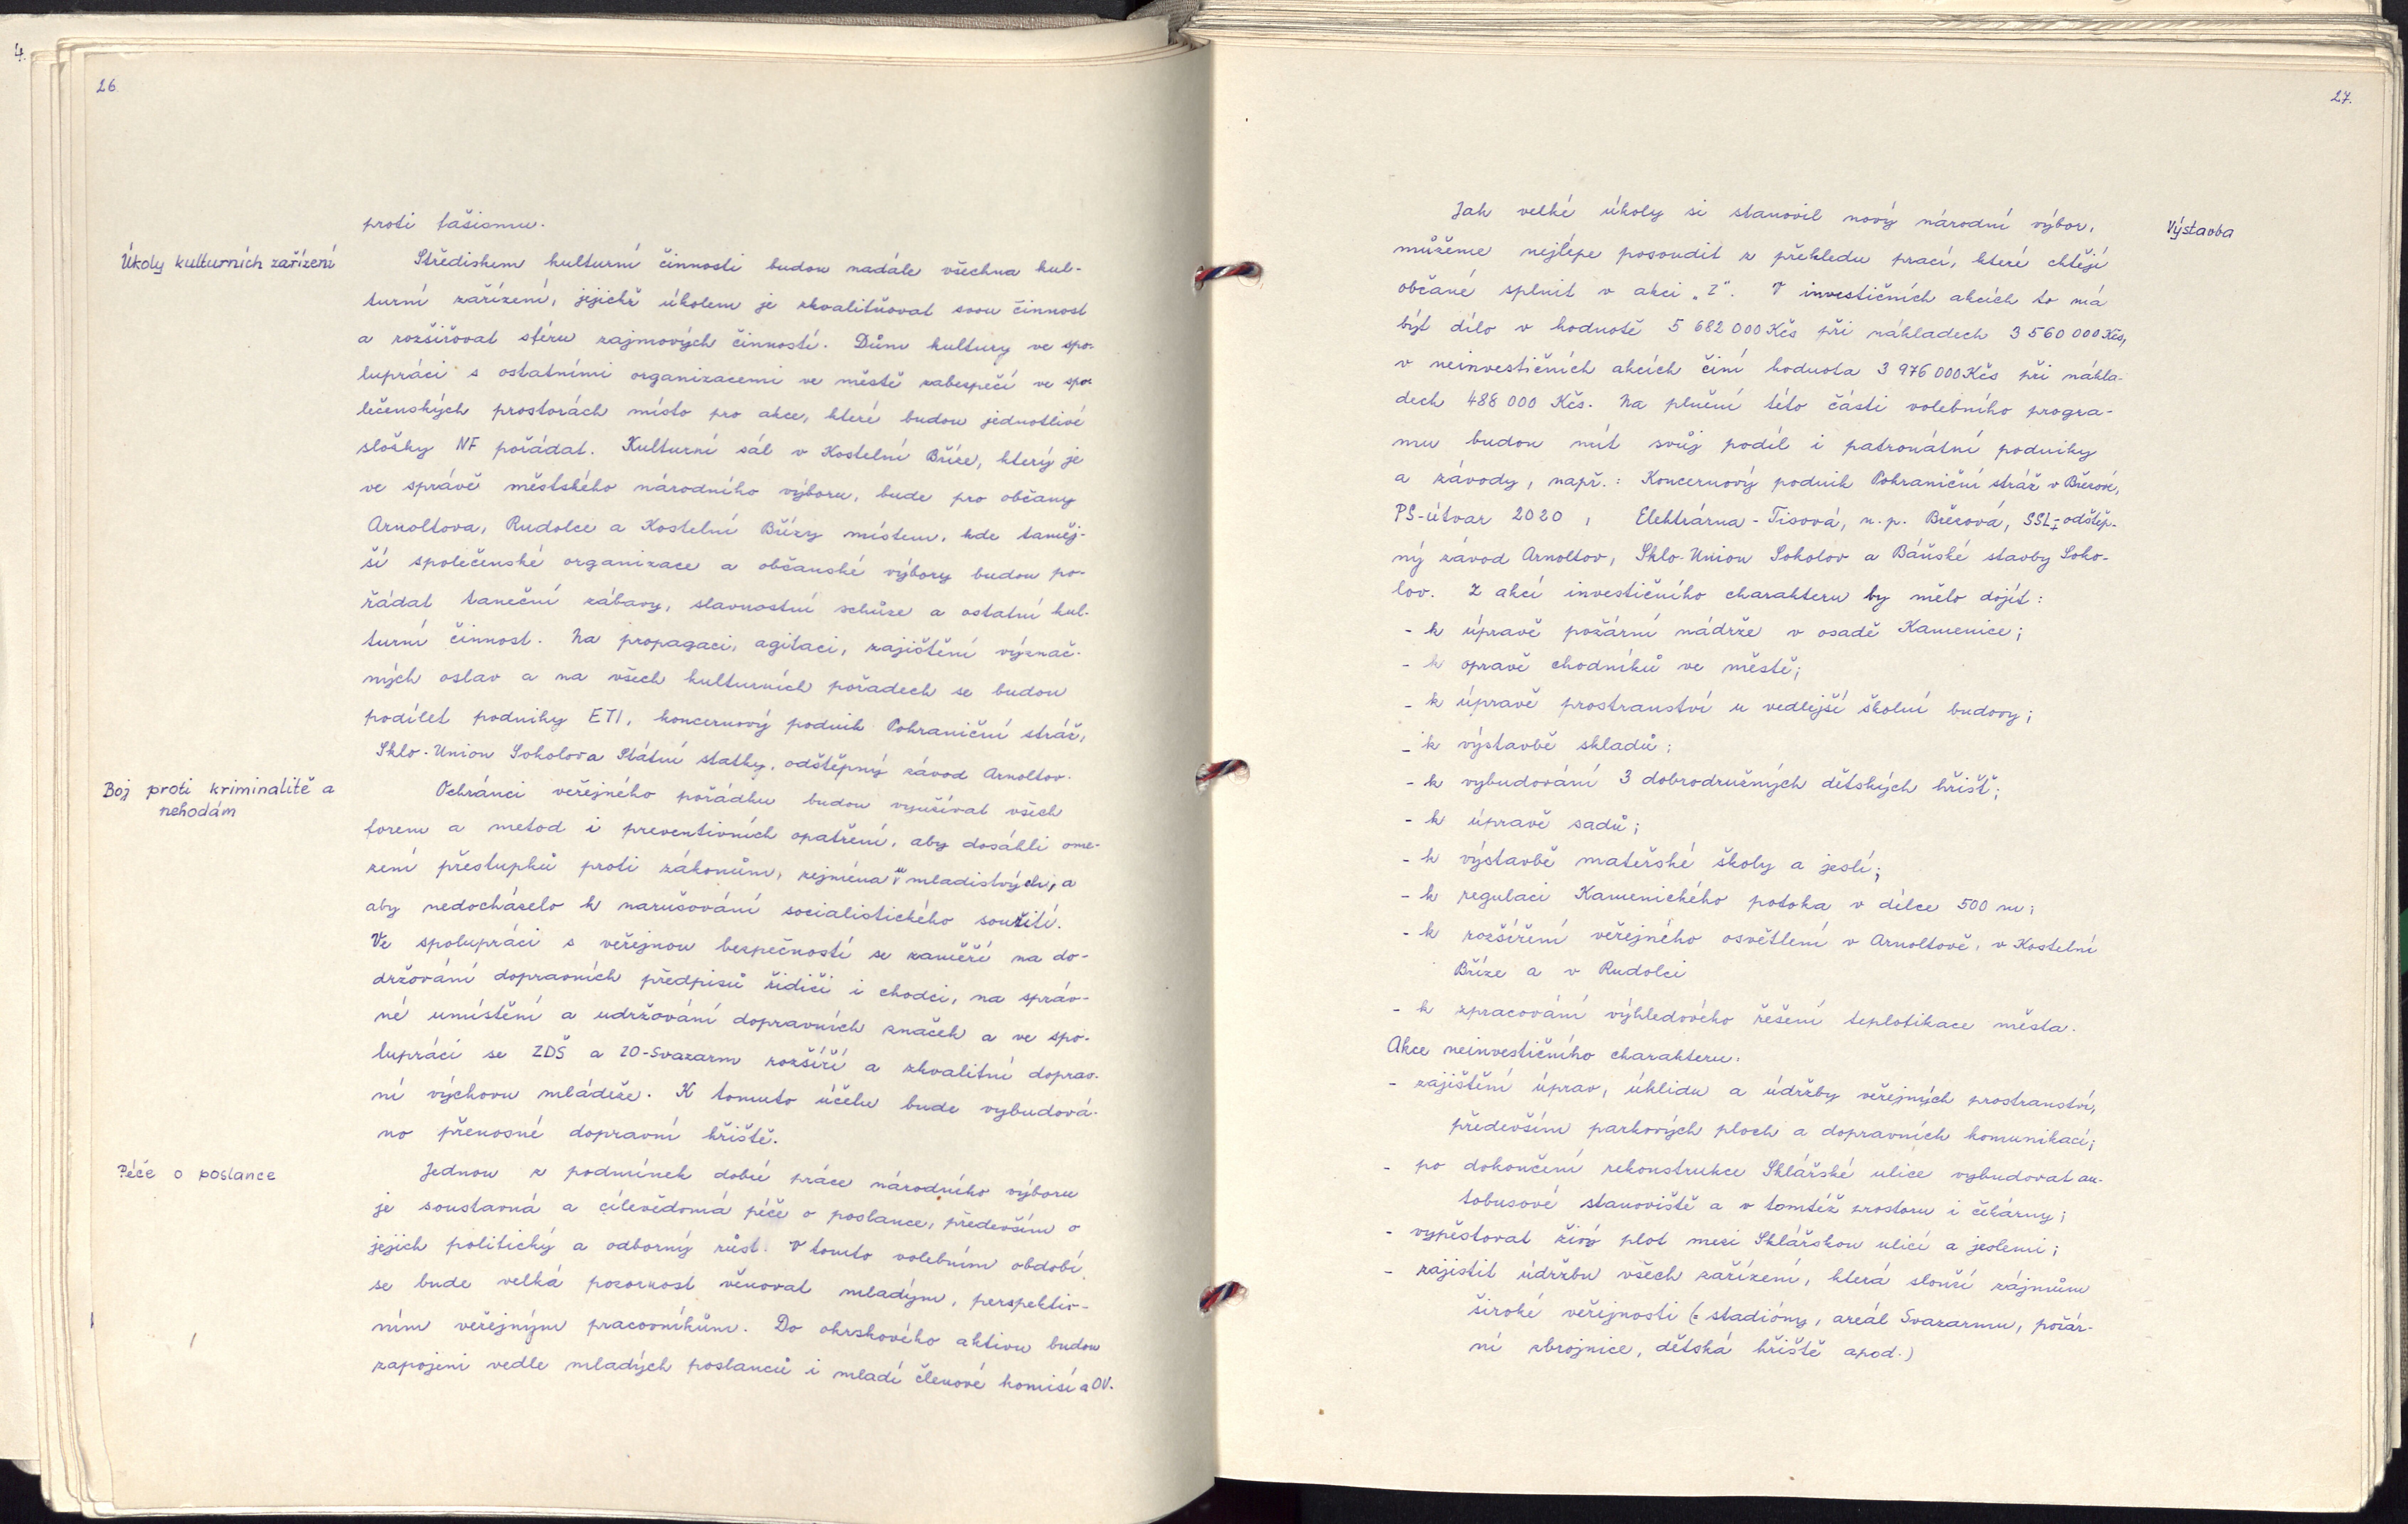 4.
26
proti fašismu.
Úkoly kulturních zařízení
Střediskem kulturní činnosti budou nadále všechna kul-
turní zařízení, jejichž úkolem je zkvalitňovat svou činnost
a rozšiřovat sféru zajmových činností. Dům kultury ve spo-
lupráci s ostatními organizacemi ve městě zabezpečí ve spo-
lečenských prostorách místo pro akce, které budou jednotlivé
složky NF pořádat. Kulturní sál v Kostelní Bříze, který je
ve správě městského národního výboru, bude pro občany
Arnoltova, Rudolce a Kostelní Břízy místem, kde taměj-
ší společenské organizace a občanské výbory budou po-
řádat taneční zábavy, slavnostní schůze a ostatní kul-
turní činnost. Na propagaci, agitaci, zajištění význač-
ných oslav a na všech kulturních pořadech se budou
podílet podniky ETI, koncernový podnik Pohraniční stráž,
Sklo-Union Sokolov a Státní statky, odštěpný závod Arnoltov.
Boj proti kriminalitě a
nehodám
Ochránci veřejného pořádku budou využívat všech
forem a metod i preventivních opatření, aby dosáhli ome-
zení přestupků proti zákonům, zejména u mladistvých, a
aby nedocházelo k narušování socialistického soužití.
Ve spolupráci s veřejnou bezpečností se zaměří na do-
držování dopravních předpisů řidiči i chodci, na správ-
né umístění a udržování dopravních značek a ve spo-
lupráci se ZDŠ a ZO-Svazarm rozšíří a zkvalitní doprav-
ní výchovu mládeže. K tomuto účelu bude vybudová-
no přenosné dopravní hřiště.
Péče o poslance
Jednou z podmínek dobré práce národního výboru
je soustavná a cílevědomá péče o poslance, především o
jejich politický a odborný růst. V tomto volebním období
se bude velká pozornost věnovat mladým, perspektiv-
ním veřejným pracovníkům. Do okrskového aktivu budou
zapojeni vedle mladých poslanců i mladí členové komisí a OV.
27.
Výstavba
Jak velké úkoly si stanovil nový národní výbor,
můžeme nejlépe posoudit z přehledu prací, které chtějí
občané splnit v akci „Z". V investičních akcích to má
být dílo v hodnotě 5 682 000 Kčs při nákladech 3 560 000 Kčs,
v neinvestičních akcích činí hodnota 3 976 000 Kčs při nákla-
dech 488 000 Kčs. Na plnění této části volebního progra-
mu budou mít svůj podíl i patronátní podniky
a závody, např.: Koncernový podnik Pohraniční stráž v Březové,
PS-útvar 2020, Elektrárna-Tisová, n.p. Březová, SSL-odštěp-
ný závod Arnoltov, Sklo-Union Sokolov a Báňské stavby Soko-
lov. Z akcí investičního charakteru by mělo dojít:
- k úpravě požární nádrže v osadě Kamenice;
- k opravě chodníků ve městě;
- k úpravě prostranství u vedlejší školní budovy;
- k výstavbě skladů;
- k vybudování 3 dobrodružných dětských hřišť;
- k úpravě sadů;
- k výstavbě mateřské školy a jeslí;
- k regulaci Kamenického potoka v délce 500 m;
- k rozšíření veřejného osvětlení v Arnoltově, v Kostelní
Bříze a v Rudolci
- k zpracování výhledového řešení teplofikace města.
Akce neinvestičního charakteru:
- zajištění úprav, úklidu a údržby veřejných prostranství,
především parkových ploch a dopravních komunikací;
- po dokončení rekonstrukce Sklářské ulice vybudovat au-
tobusové stanoviště a v tomtéž prostoru i čekárny;
- vypěstovat živý plot mezi Sklářskou ulicí a jeslemi;
- zajistit údržbu všech zařízení, která slouží zájmům
široké veřejnosti (: stadióny, areál Svazarmu, požár-
ní zbrojnice, dětská hřiště apod.)